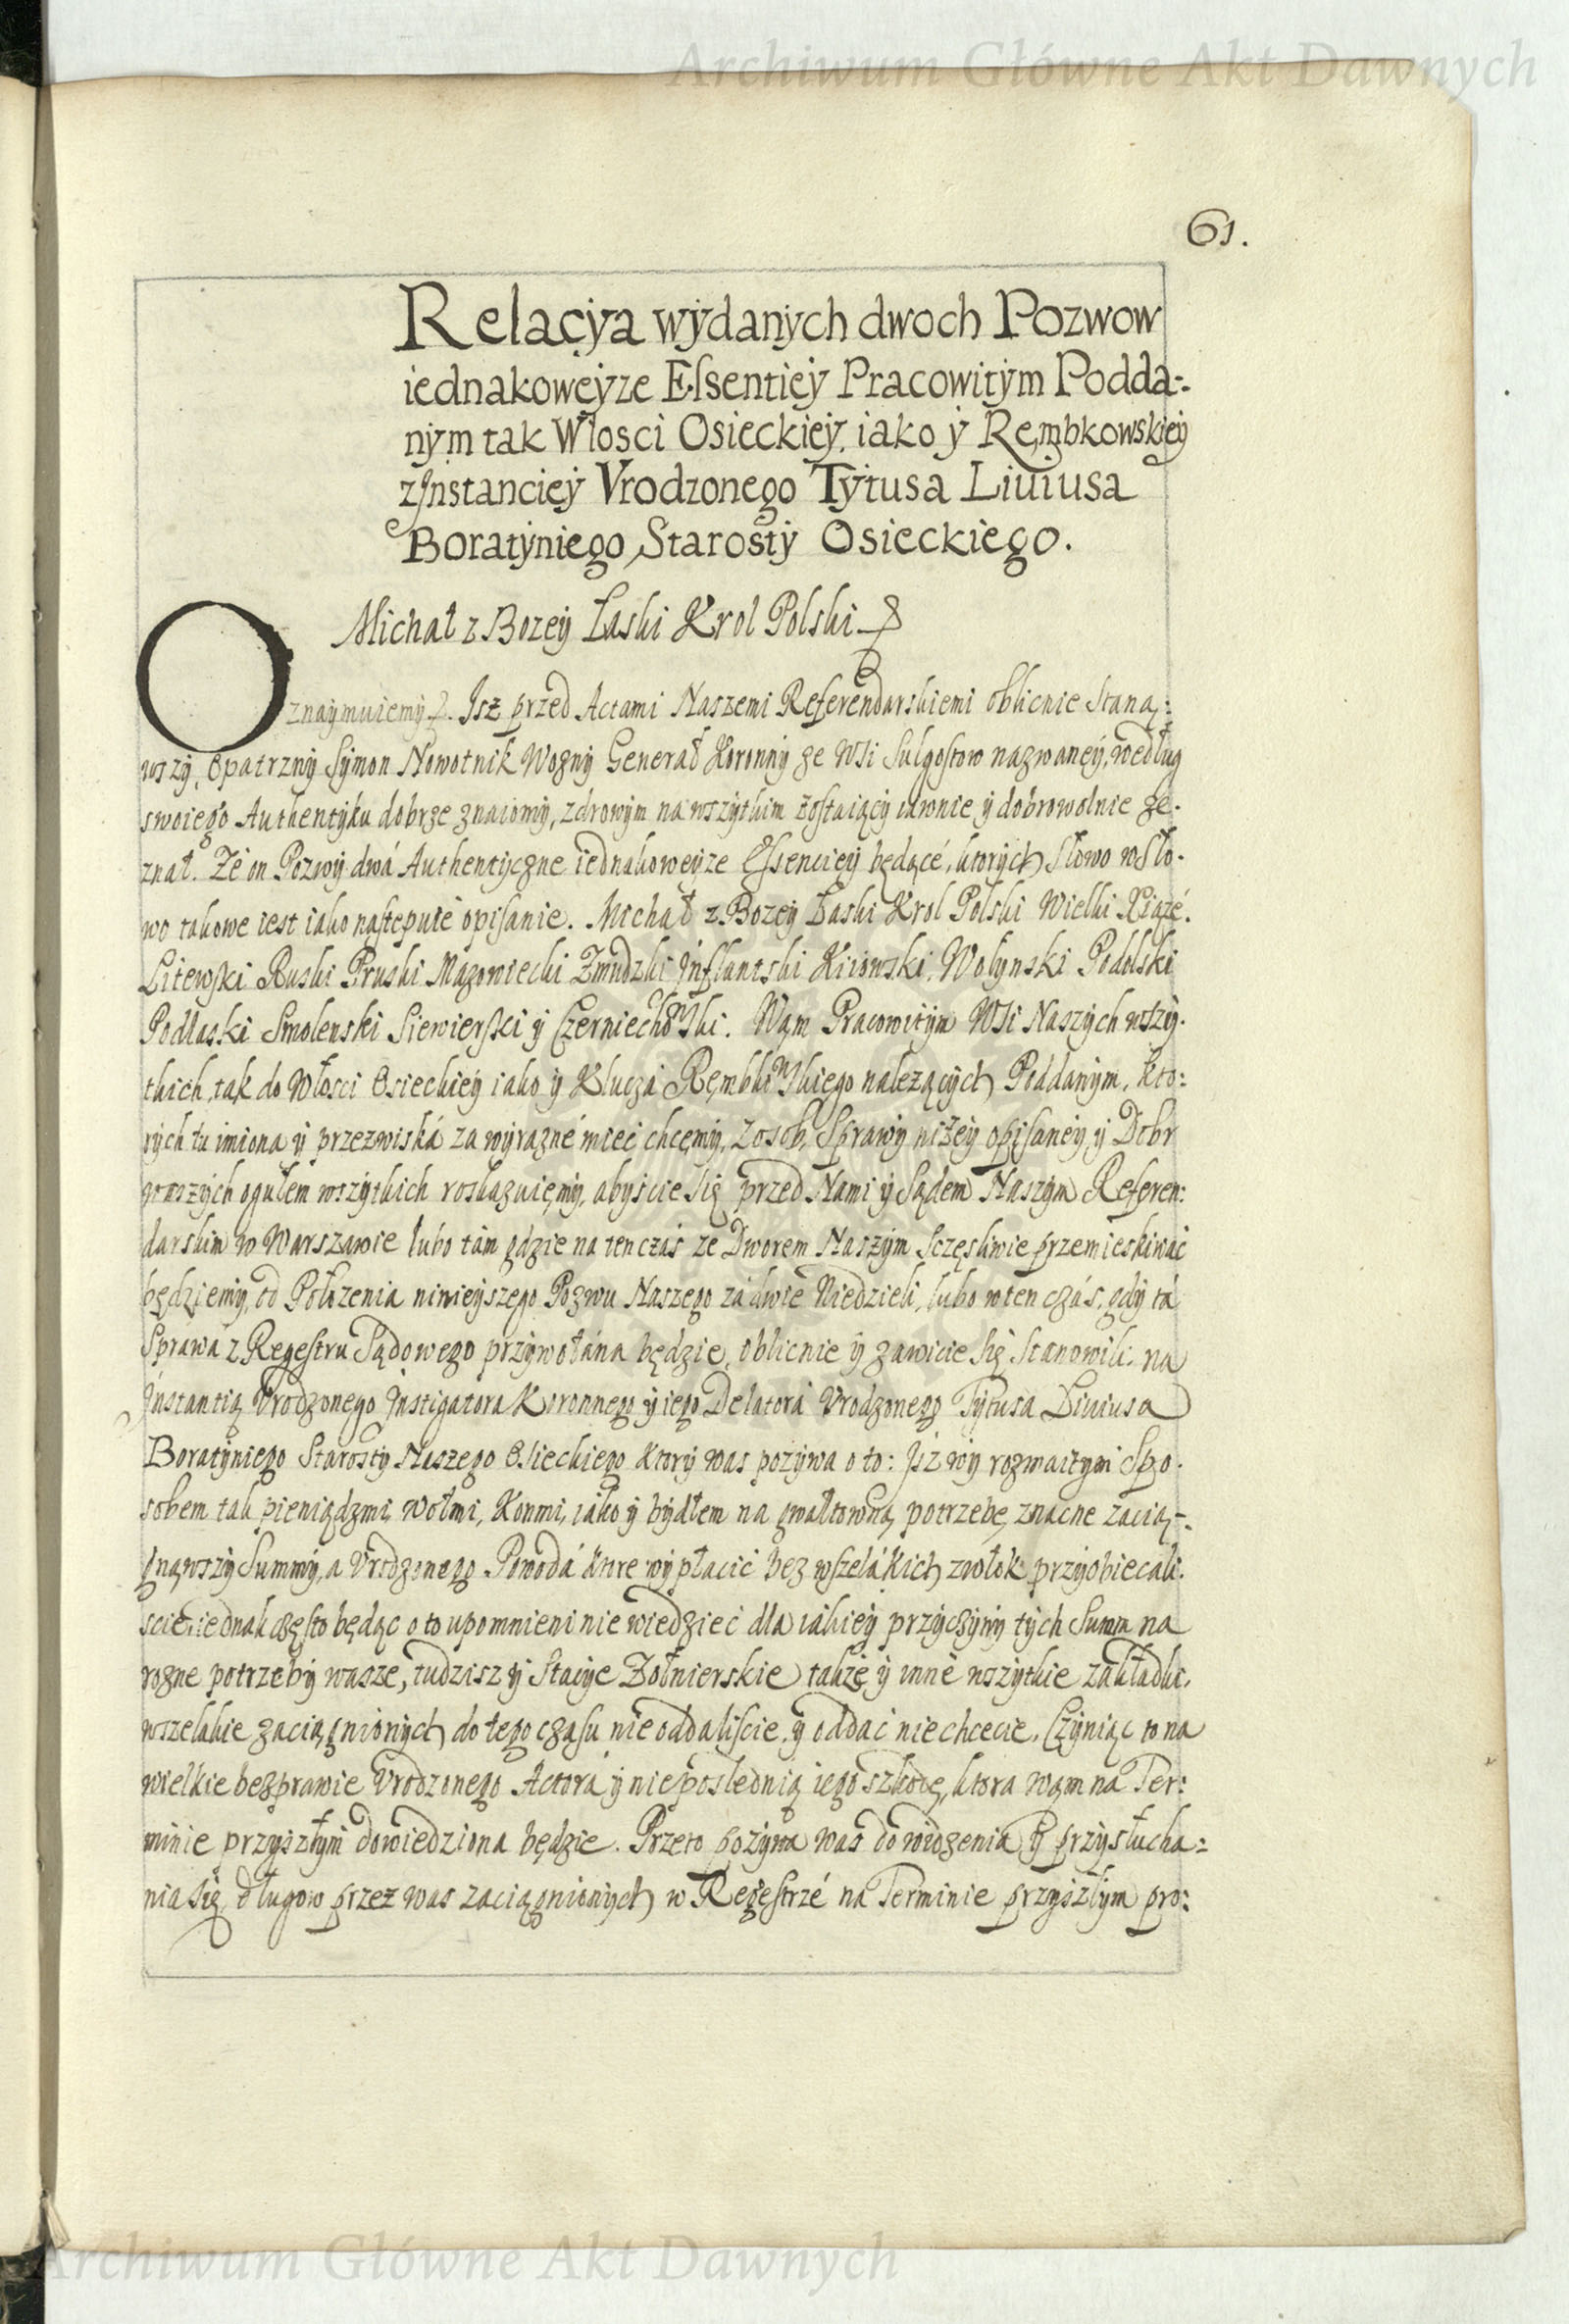 Archiwum Główne Akt Dawnych
61.
Relacÿa wÿdanÿch dwoch Pozwow
iednakoweÿze Essentieÿ Pracowitÿm Podda-:
nÿm tak Włosci Osieckieÿ iako ÿ Rembkowskieÿ
z Jnstancieÿ Vrodzonego Tÿtusa Liuiusa
Boratÿniego Starostÿ Osieckiego.
Michał z Bozeÿ Łaski Krol Polski
Oznaÿmuiemÿ. Isz przed Actami Naszemi Referendarskiemi oblicnie Stana:
wszÿ, Opatrznÿ Sÿmon Nowotnik Woznÿ Generał Koronnÿ ze Wsi Sulgostow nazwaneÿ, według
swoiego Authentÿku dobrze znaiomÿ, zdrowÿm na wszÿtkim zostaiącÿ iawnie ÿ dobrowolnie ze-
znał. Ze on Pozwÿ dwá Authentÿczne iednakoweÿze Essencieÿ będącé, ktorÿch Słowo w Sło-
wo takowe iest iako nastepuie opisanie. Michał z Bozeÿ Łaski Krol Polski Wielki Xiąze.
Litewski Ruski Pruski Mazowiecki Zmudzki Jnflantski Kiiowski, Wolÿnski Podolski
Podlaski Smolenski Siewierski ÿ Czerniechowski. Wąm Pracowitÿm Wsi Naszÿch wszÿ-
tkich, tak do Włosci Osieckieÿ iako ÿ Klucza Rembkowskiego nalezącÿch Poddanÿm, kto:
rÿch tu imiona ÿ przezwiská za wÿrazné mieć chcemÿ, z osob, Sprawÿ nizeÿ opisaneÿ ÿ Dobr
waszÿch ogułem wszÿtkich roskazuiemÿ, abÿscie Się przed Nami ÿ Sądem Naszÿm Referen:
darskim w Warszawie lubo tam gdzie na ten czás ze Dworem Naszÿm Sczęsliwie przemieskiwáć
będziemÿ, od Połozenia ninieÿszego Pozwu Naszego zá dwie Niedzieli, lubo w ten czás, gdÿ tá
Spráwá z Regestru Sądowego przÿwołána będzie, oblicnie ÿ zawicie Się Stanowili, na
Jnstantią Vrodzonego Jnstigatora Koronnego ÿ iego Delatorá Vrodzonego Tÿtusa Liuiusa
Boratÿniego Starostÿ Naszego Osieckiego ktorÿ was pozÿwa o to: Jsz wÿ rozmaitÿm Spo-
sobem tak pieniądzmi, wołmi, Konmi, iáko ÿ bÿdłem na gwałtowną potrzebę znacne zacią-:
gnąwszÿ Summÿ, a Vrodzonego Powodá ktore wÿpłacić bez wszelákich zwłok przÿobiecali-
scie, iednak często będąc o to upomnieni nie wiedzieć dla iákieÿ przÿczÿnÿ tÿch Summ na
rozne potrzebÿ wasze, tudzisz ÿ Stacÿe Zołnierskie takze ÿ inné wszÿtkie zakładki,
wszelakie zaciągnionÿch do tego czasu nie oddaliscie, ÿ oddać nie chcecie, Czÿniąc to na
wielkie bezprawie Vrodzonego Actorá ÿ nieposlednią iego szkodę, ktora wąm na Ter:
minie przÿszłÿm dowiedziona będzie. Przeto pozÿwa was do widzenia ÿ przÿsłucha-:
nia się długow przez was zaciągnionÿch w Regestrzé na Terminie przÿszłÿm pro:
Archiwum Główne Akt Dawnych